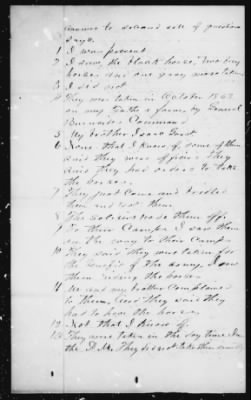 answer to second set of question
says.
1 I was present
2 I saw, the black horse, two bay
horses and one gray mare taken
3 I did not
4 They were taken in October 1863
on my farm, by General
Burnsides Command
5 My brother Isaac
6 None that I know of, some of them
said they were officers. They
said they had orders to take
the horses.
7 They just came and bridled
them and took them.
8 The soldiers rode them off.
9 To their Camps I saw them
on the way to their Camps
10 They said they were taken for
the benefit of the army, I saw
them riding the horses.
11 Me and my brother Complained
to them, and they said they
had to have the horses.
12 Not that I know of.
13 They were taken in the day time
They did not take them